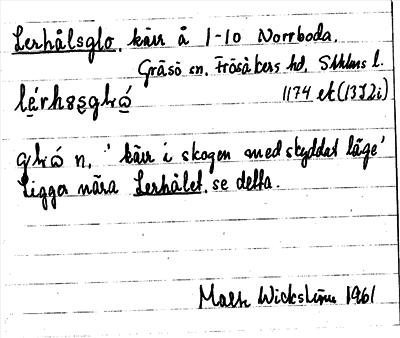 Lerhålsglo, kärr å 1-10 Norrboda,
Gräsö sn, Frösåkers hd, Sthlms l.
1174 ek (13J2i)
n, 'kärr i skogen med skyddat läge'
Ligger nära Lerhålet, se detta.
Wickström 1961